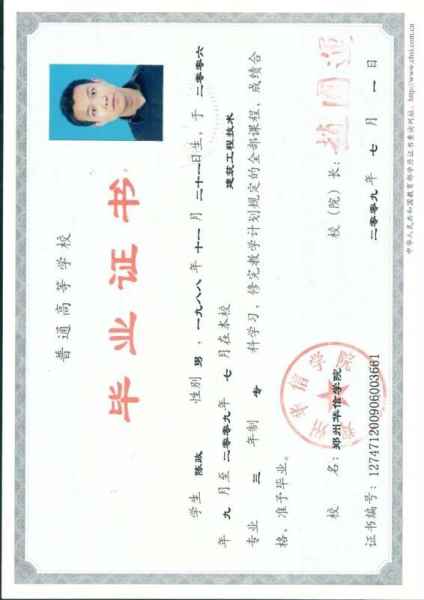 普通高等学校
毕业证书
学生 陈政 性别 男，一九八八年 十一月 二十一日生，于 二零零六
年 九 月至 二零零九年 七 月在本校 建筑工程技术
专业 三 年制 专 科学习，修完教学计划规定的全部课程，成绩合
格，准予毕业。
校 名：郑州华信学院 校（院）长：
郑州华信学院
证书编号：127471200906003661 二零零九年 七 月 一 日
中华人民共和国教育部学历证书查询网址：http://www.chsi.com.cn